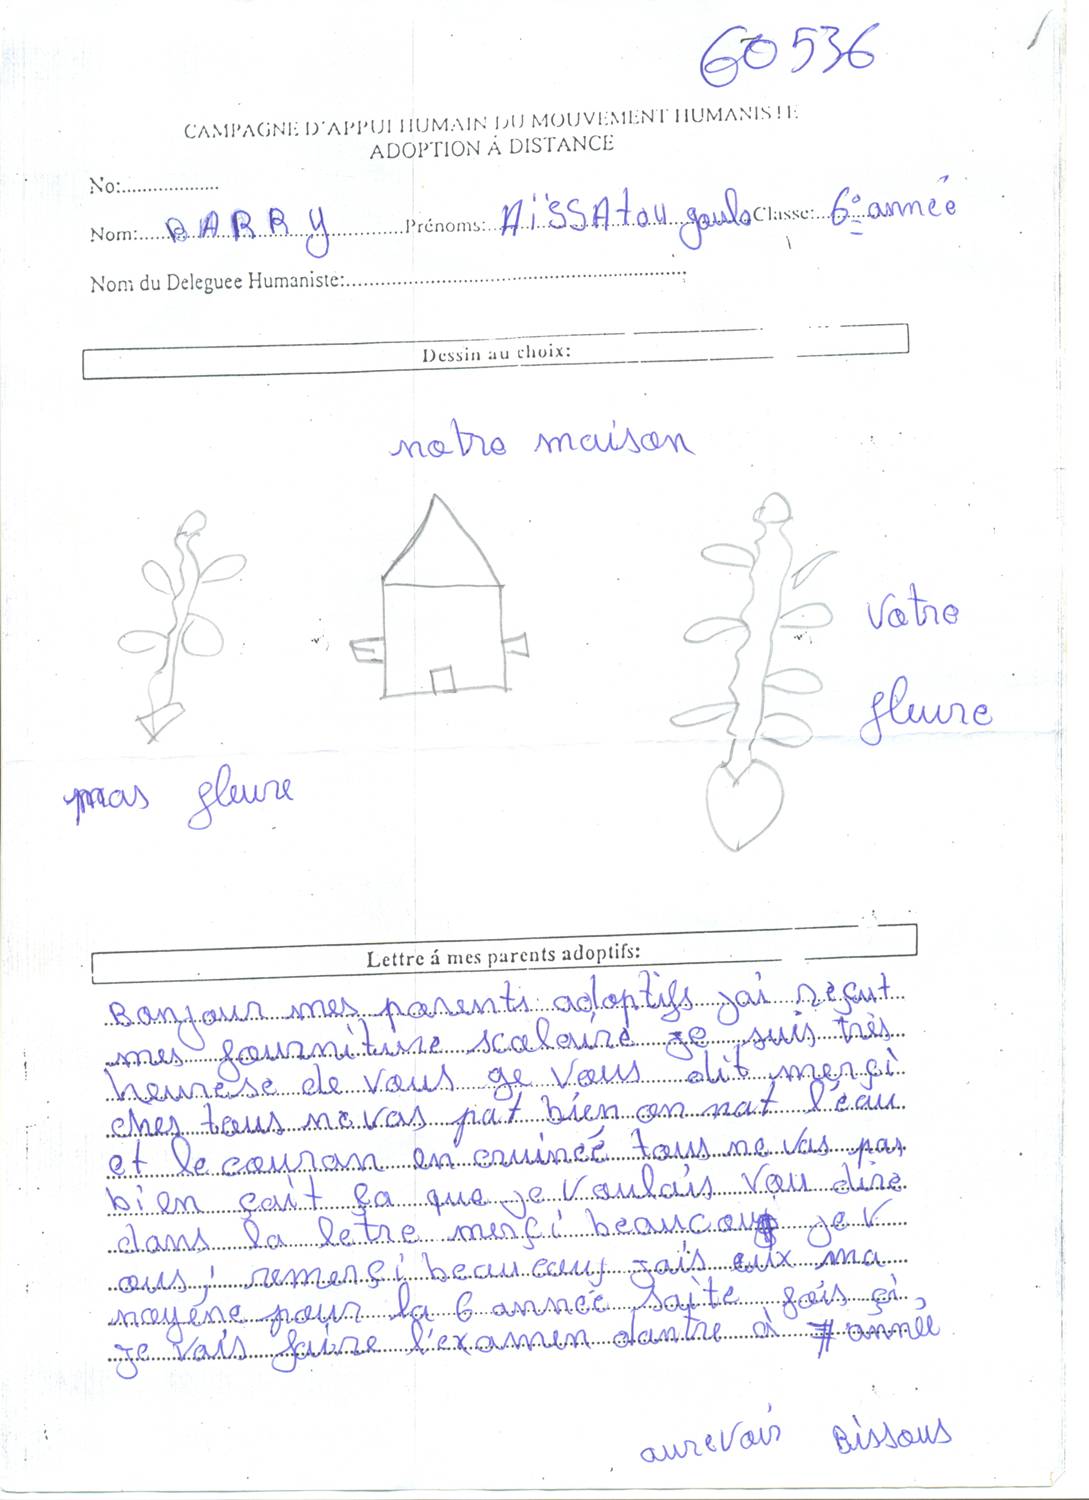 60536
CAMPAGNE D'APPUI HUMAIN DU MOUVEMENT HUMANISTE
ADOPTION À DISTANCE
No:...................
Nom:.....BARRY..............Prénoms:..AÏSSAtou goulo Classe:..6° année
Nom du Deleguee Humaniste:.................................................................
Dessin au choix:
notre maison
votre
fleure
mas fleure
Lettre á mes parents adoptifs:
Bonjour mes parents adoptifs jai reçut
mes fourniture scolaire je suis très
heurese de vous ge vous dit merçi
ches tous ne vas pat bien on nat l'éau
et le couran en cruineé tous ne vas pas
bien çait ça que je voulais vou dire
dans la letre merçi beaucoup je v
ous, remerçi beaucoup jais eux ma
moyene pour la 6 année saite fois çi
je vais faire l'examen dantre à 7 année
aurevoir Bissous